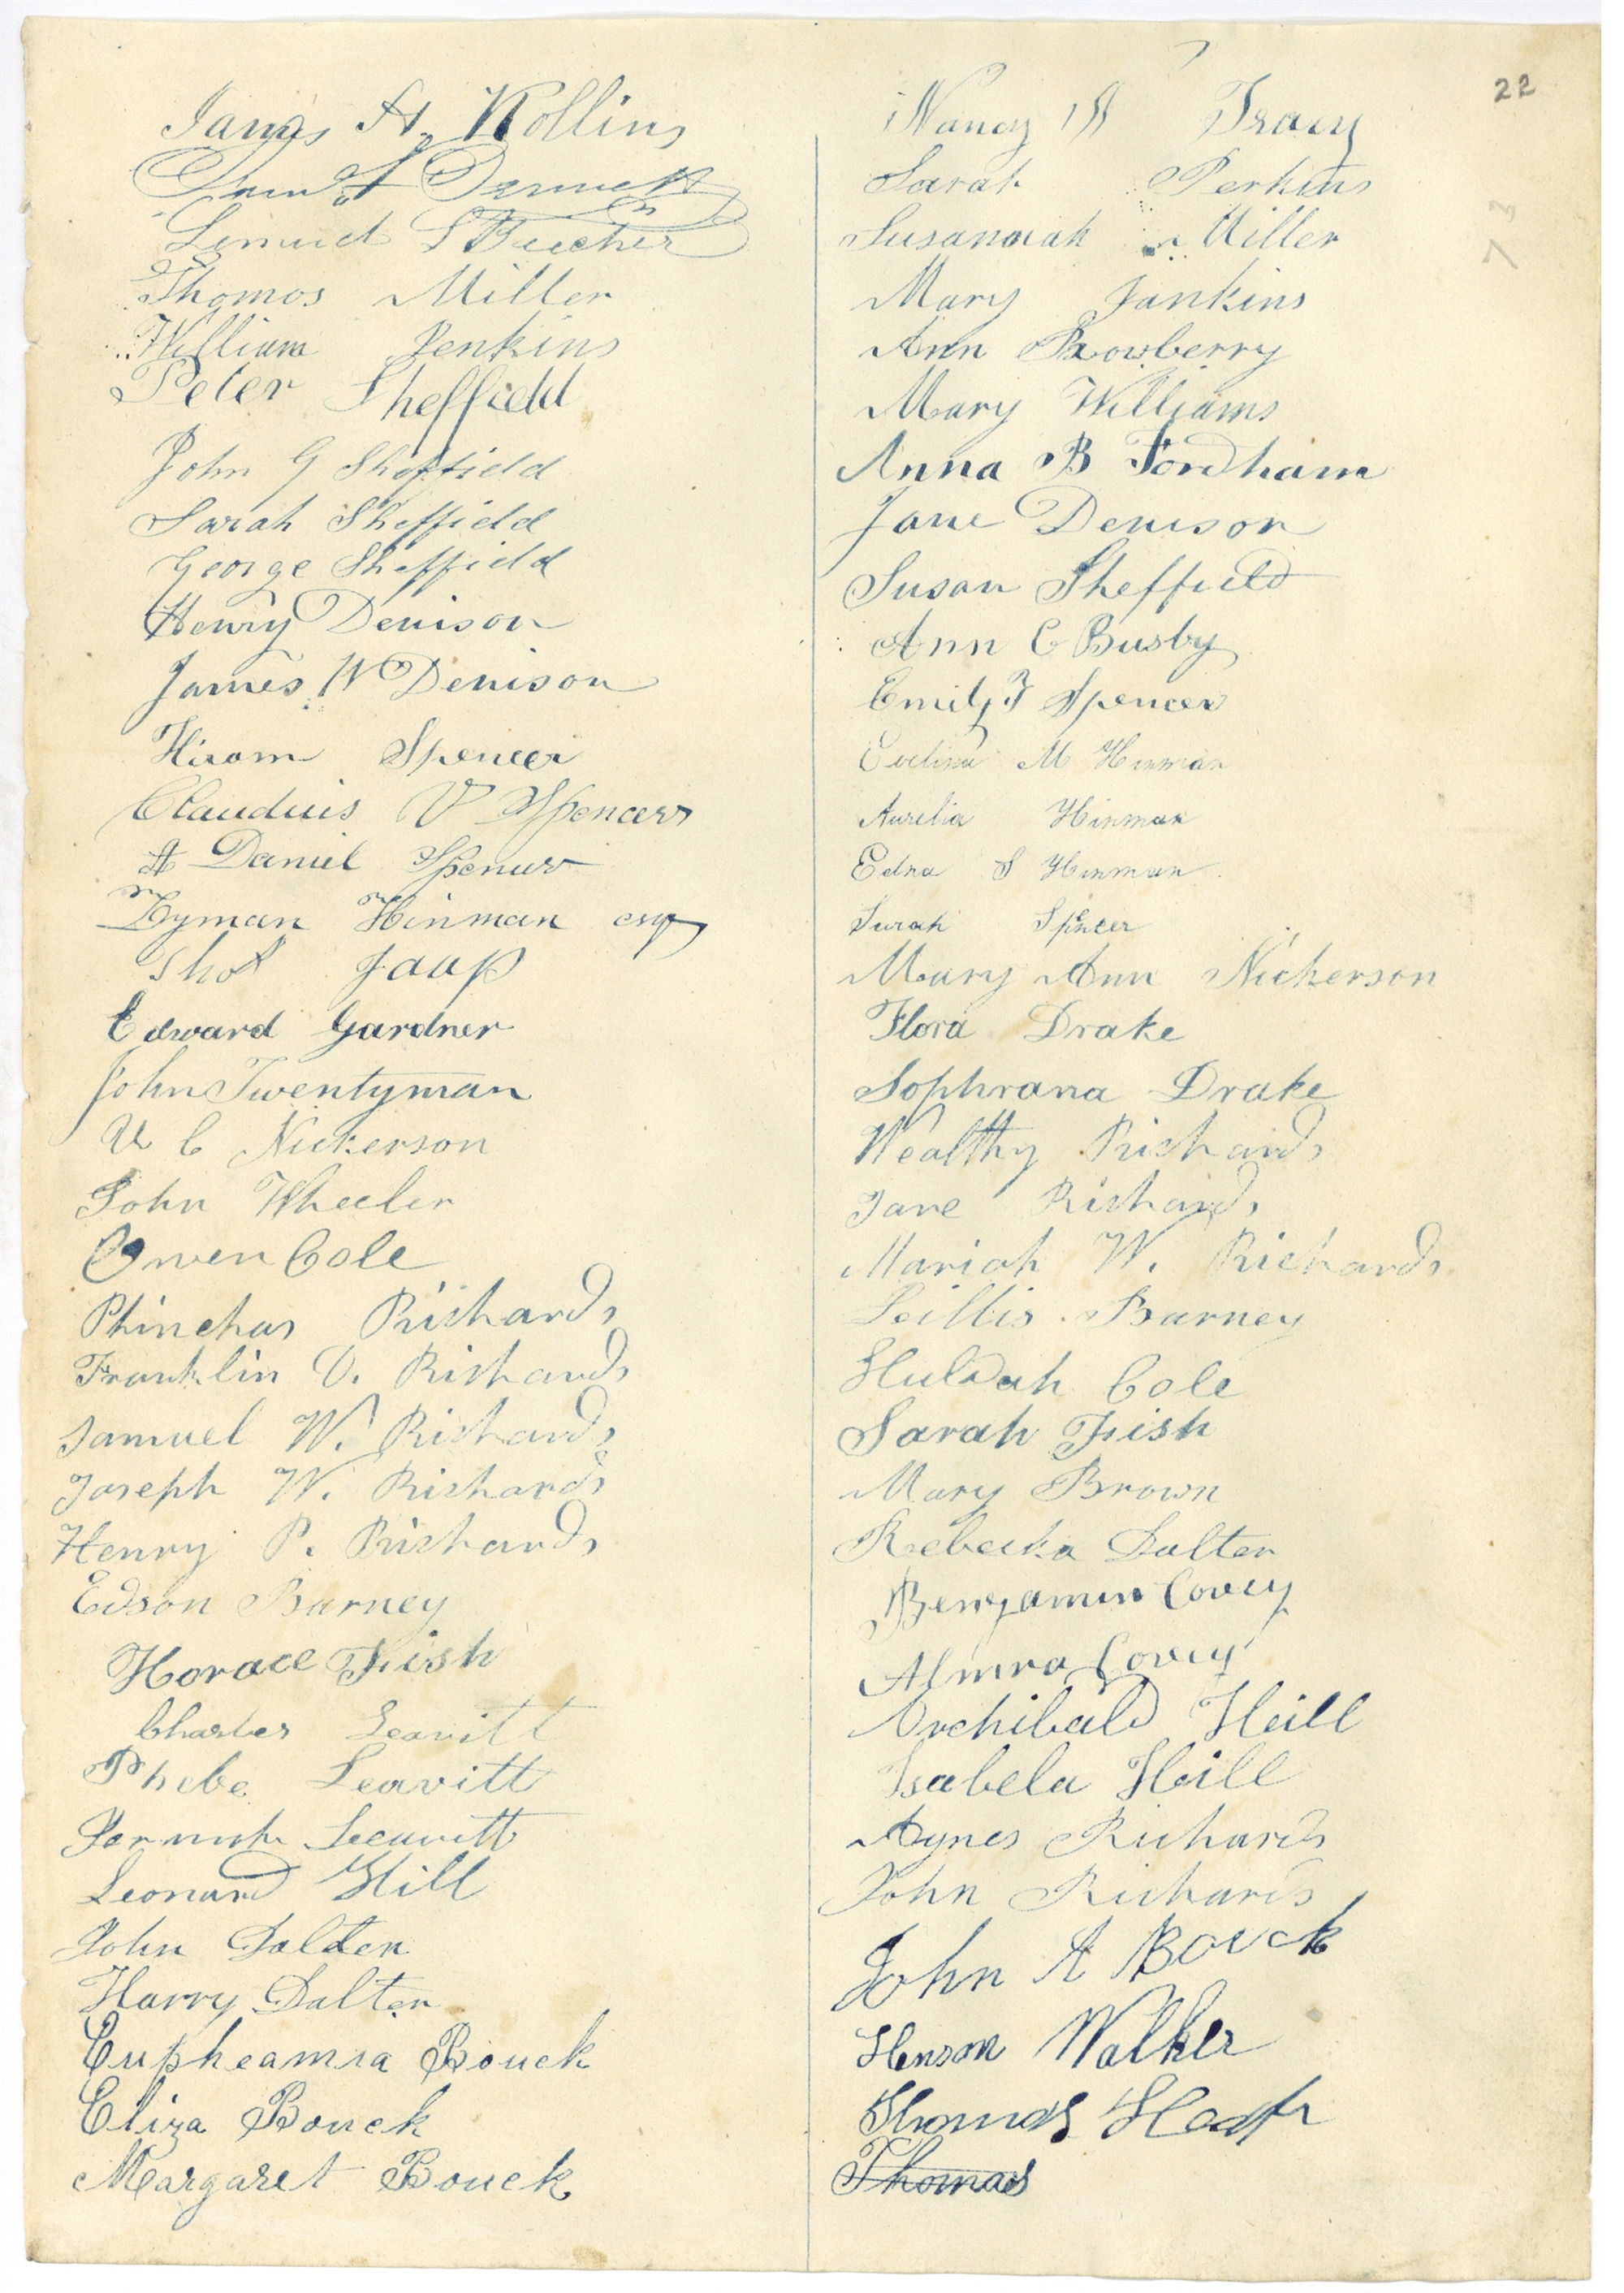 22
73
James H. Rollins
Lemuel S Beecher
Thomos Miller
William Jenkins
Peter Sheffield
John G Sheffield
Sarah Sheffield
George Sheffield
Henry Denison
James W Denison
Hirom Spencer
Clauduis V Spencer
Daniel Spencer
Lyman Hinman esq
Jaap
Edward Gardner
John Twentyman
U C Nickerson
John Wheeler
Owen Cole
Phinehas Richards
Franklin D. Richards
Samuel W. Richards
Joseph W. Richards
Henry P. Richards
Edson Barney
Horace Fish
Charles Leavitt
Phebe Leavitt
Leavitt
Leonard Hill
John Dalten
Harry Dalten
Eupheamia Bouck
Eliza Bouck
Margaret Bouck
Nancy N Tracy
Sarah Perkins
Susannah Miller
Mary Jankins
Ann Bowberry
Mary Williams
Anna B Fordham
Jane Denison
Susan Sheffield
Ann C Busby
Emily F Spencer
Evelina M Hinman
Aurelia Hinman
Edna S Hinman
Sarah Spncer
Mary Ann Nickerson
Flora Drake
Sophrana Drake
Wealthy Richards
Jane Richards
Mariah W. Richards
Lillis Barney
Huldah Cole
Sarah Fish
Mary Brown
Rebecka Dalten
Benjamin Covey
Almira Covey
Archibald Heill
Isabela Heill
Agnes Richards
John Richards
John A Bouck
Henson Walker
Thomas Heath
Thomas